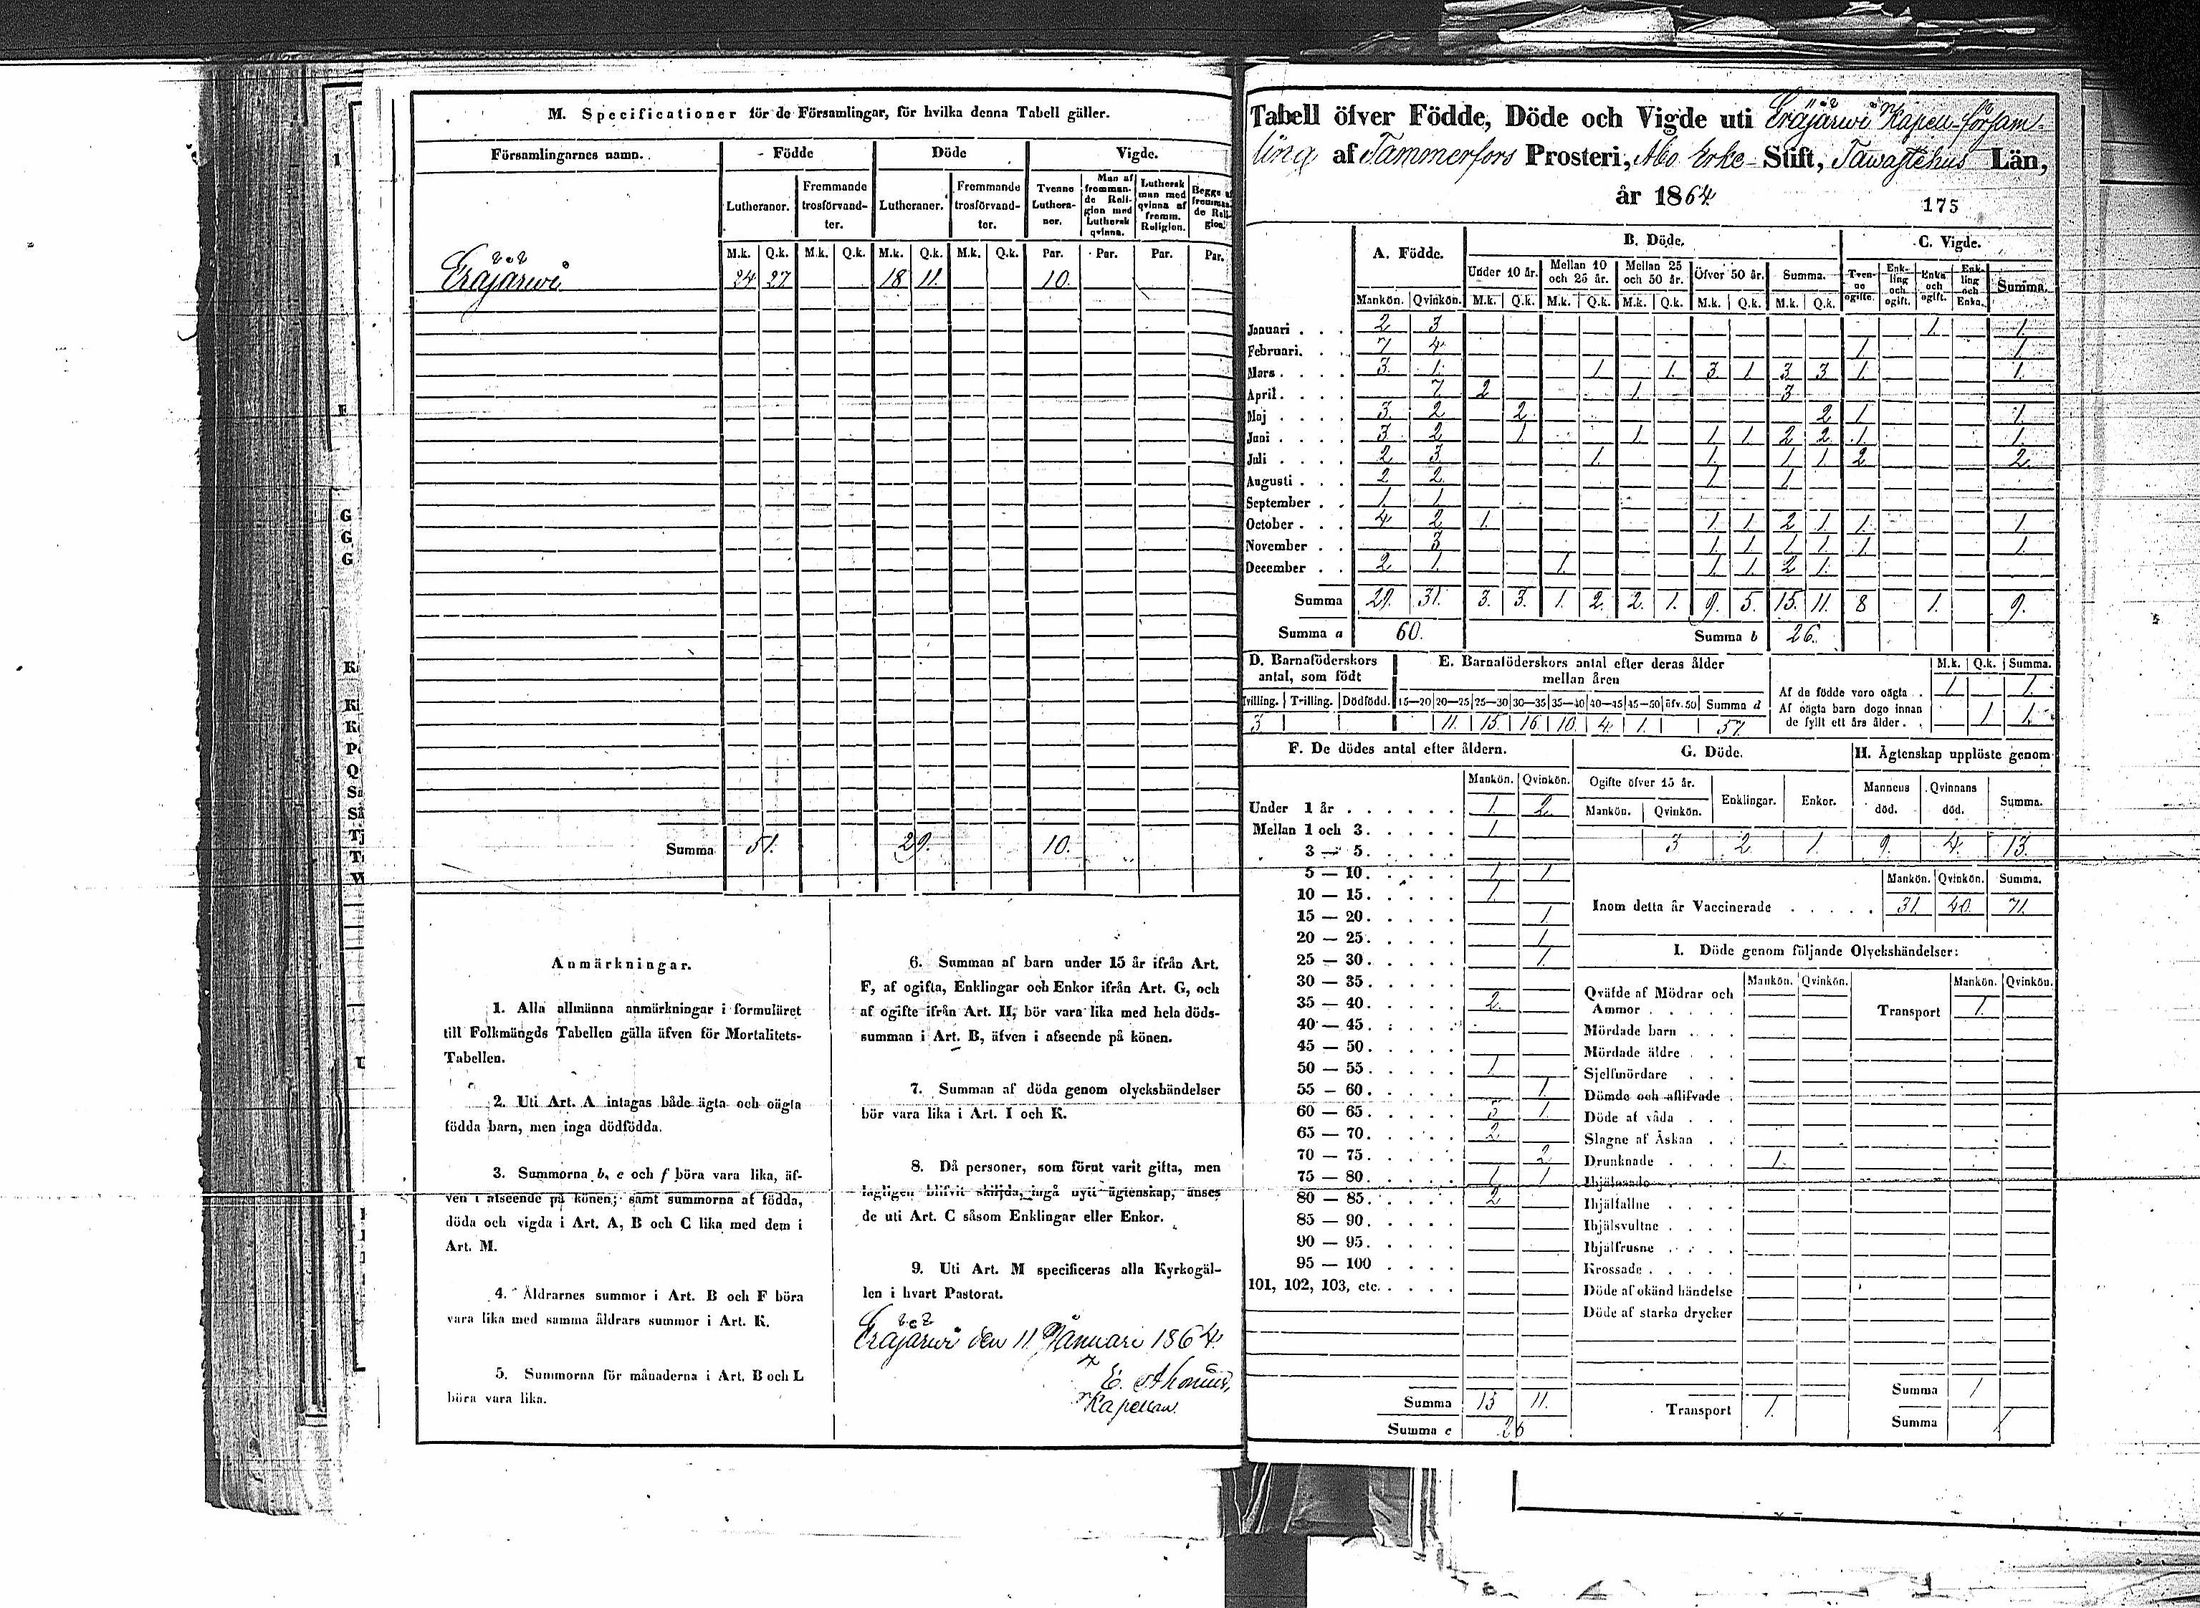 M. Specificationer för de Församlingar, för hvilka denna Tabell gäller.
Församlingarnes namn. Födde Döde Vigde.
Lutheraner. Fremmande trosförvandter. Lutheraner. Fremmande trosförvandter. Tvenne Lutheraner. Man af fremmande Religion med Luthersk qvinna. Luthersk man med qvinna af fremm. Religion. Begge af fremmande Religion.
M.k. Q.k. M.k. Q.k. M.k. Q.k. M.k. Q.k. Par. Par. Par. Par.
Eräjärwi 24 27 18 11. 10.
Summa 51. 29. 10.
Anmärkningar.
1. Alla allmänna anmärkningar i formuläret
till Folkmängds Tabellen gälla äfven för Mortalitets-
Tabellen.
2. Uti Art. A intagas både ägta och oägta
födda barn, men inga dödfödda.
3. Summorna b, c och f böra vara lika, äf-
ven i afseende på könen; samt summorna af födda,
döda och vigda i Art. A, B och C lika med dem i
Art. M.
4. Åldrarnes summor i Art. B och F böra
vara lika med samma åldrars summor i Art. K.
5. Summorna för månaderna i Art. B och L
böra vara lika.
6. Summan af barn under 15 år ifrån Art.
F, af ogifta, Enklingar och Enkor ifrån Art. G, och
af ogifte ifrån Art. H, bör vara lika med hela döds-
summan i Art. B, äfven i afseende på könen.
7. Summan af döda genom olyckshändelser
bör vara lika i Art. I och K.
8. Då personer, som förut varit gifta, men
lagligen blifvit skiljda, ingå nytt ägtenskap, anses
de uti Art. C såsom Enklingar eller Enkor.
9. Uti Art. M specificeras alla Kyrkogäl-
len i hvart Pastorat.
Eräjärwi den 11 Januari 1864.
Kapellan.
Tabell öfver Födde, Döde och Vigde uti Eräjärwi Kapell-försam-
ling af Tammerfors Prosteri, Abo Erke- Stift, Tawastehus Län,
år 1864
175
A. Födde. B. Döde. C. Vigde.
Under 10 år. Mellan 10 och 25 år. Mellan 25 och 50 år. Öfver 50 år. Summa. Tvenne ogifte. Enkling och ogift. Enka och ogift. Enkling och Enka. Summa.
Mankön. Qvinkön. M.k. Q.k. M.k. Q.k. M.k. Q.k. M.k. Q.k. M.k. Q.k.
Januari 2 3 1. 1.
Februari. 7 4 1 1
Mars 3. 1. 1 1. 3 1 3 3 1. 1.
April 7 2 1. 3
Maj 3 2 2 2 1 1.
Juni 3 2 1 1 1 1 2 2 1. 1.
Juli 2 3 1. 1. 1 1 2 2
Augusti 2 2 1 1
September 1 1.
October 4 2 1. 1 1 2 1 1. 1
November 3 1. 1 1 1. 1 1.
December 2 1. 1. 1. 1. 2 1.
Summa 29. 31. 3. 3. 1. 2. 2. 1. 9. 5. 15. 11. 8 1. 9.
Summa a 60. Summa b 26.
D. Barnaföderskors antal, som födt
Tvilling. Trilling. Dödfödd.
3
E. Barnaföderskors antal efter deras ålder mellan åren
15—20 20—25 25—30 30—35 35—40 40—45 45—50 öfv. 50 Summa d
11. 15. 16 10. 4. 1. 57.
M.k. Q.k. Summa.
Af de födde voro oägta 1 1.
Af oägta barn dogo innan de fyllt ett års ålder. 1 1.
F. De dödes antal efter åldern.
Mankön. Qvinkön.
Under 1 år 1. 2
Mellan 1 och 3. 1
3 — 5.
5 — 10. 1 1
10 — 15. 1.
15 — 20. 1.
20 — 25. 1
25 — 30. 1.
30 — 35.
35 — 40. 2
40 — 45.
45 — 50.
50 — 55. 1
55 — 60. 1.
60 — 65. 3 1.
65 — 70. 2
70 — 75. 2
75 — 80. 1 1
80 — 85. 2
85 — 90.
90 — 95.
95 — 100
101, 102, 103, etc.
Summa 15 11.
Summa c 26
G. Döde.
Ogifte öfver 15 år. Enklingar. Enkor.
Mankön. Qvinkön.
3 2 1.
H. Ägtenskap upplöste genom
Mannens död. Qvinnans död. Summa.
9. 4. 13.
Mankön. Qvinkön. Summa.
Inom detta år Vaccinerade 31. 40. 71.
I. Döde genom följande Olyckshändelser:
Mankön. Qvinkön. Mankön. Qvinkön.
Qväfde af Mödrar och Ammor Transport 1.
Mördade barn
Mördade äldre
Sjelfmördare
Dömde och aflifvade
Döde af våda
Slagne af Åskan
Drunknade 1.
Ihjälfallne
Ihjälsvultne
Ihjälfrusne
Krossade
Döde af okänd händelse
Döde af starka drycker
Transport 1.
Summa 1
Summa 1